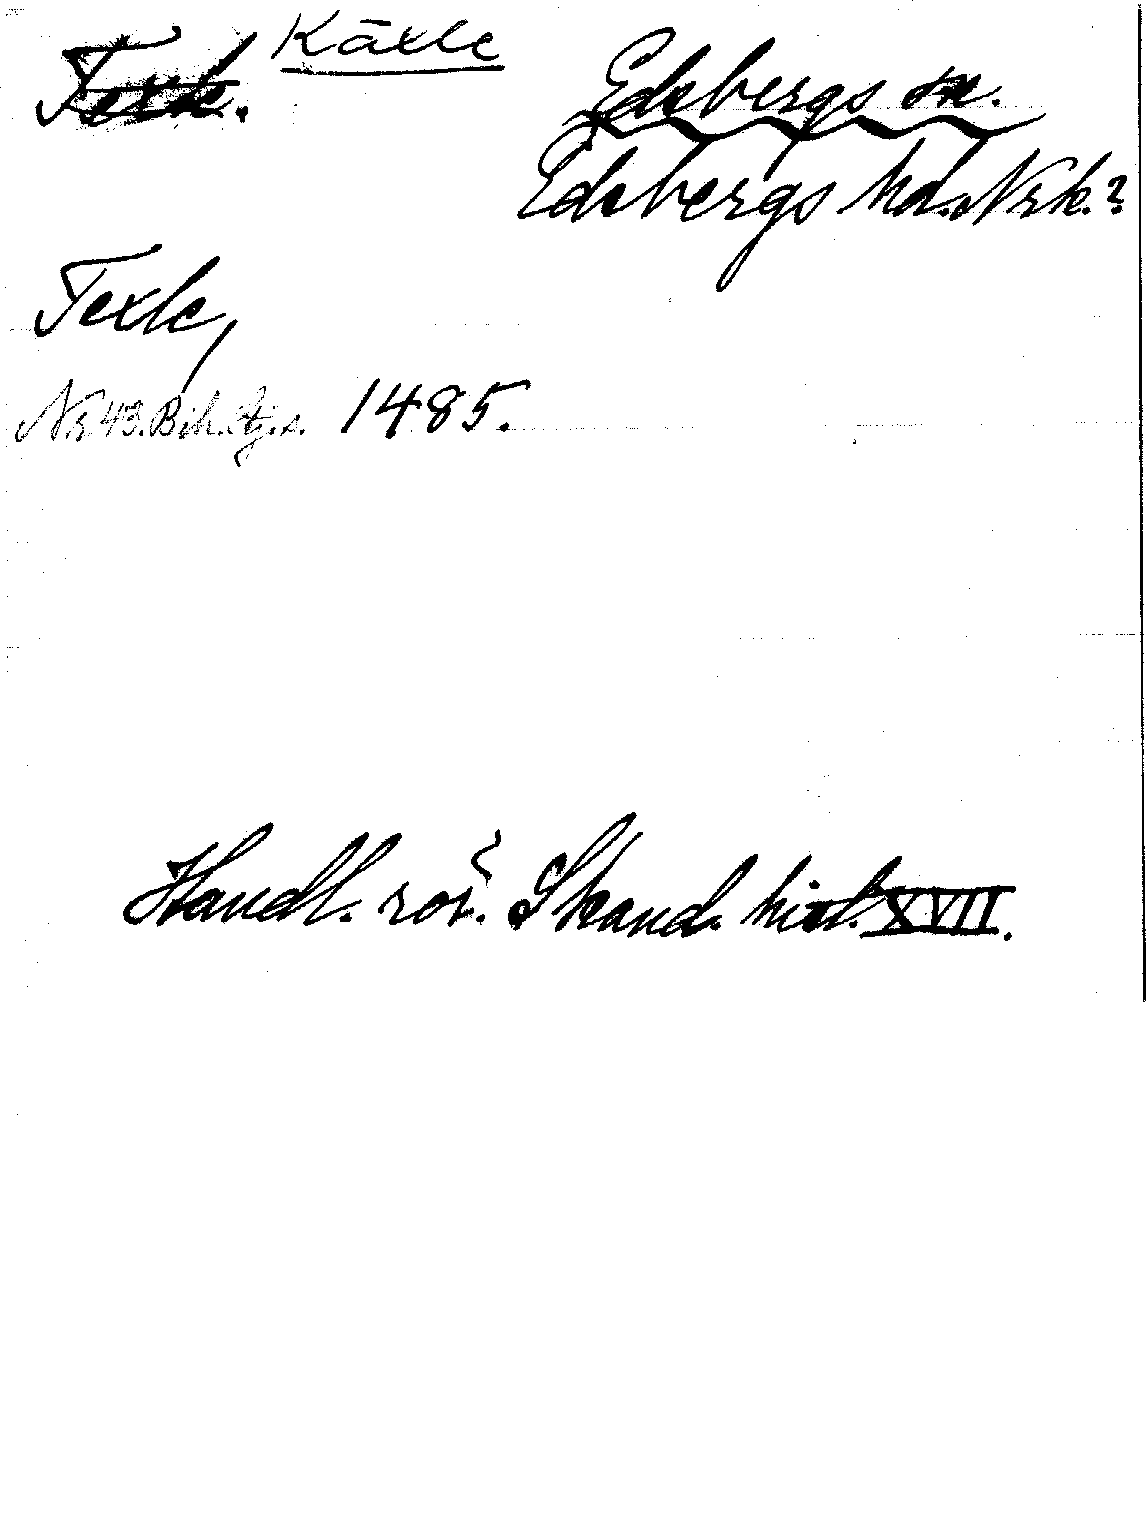 Texle. Käxle Edsbergs sn.
Edsbergs hd. Nrk.?
Texle,
Nr 43. Bih. 1485.
Handl. rör. Skand. hist. XVII.